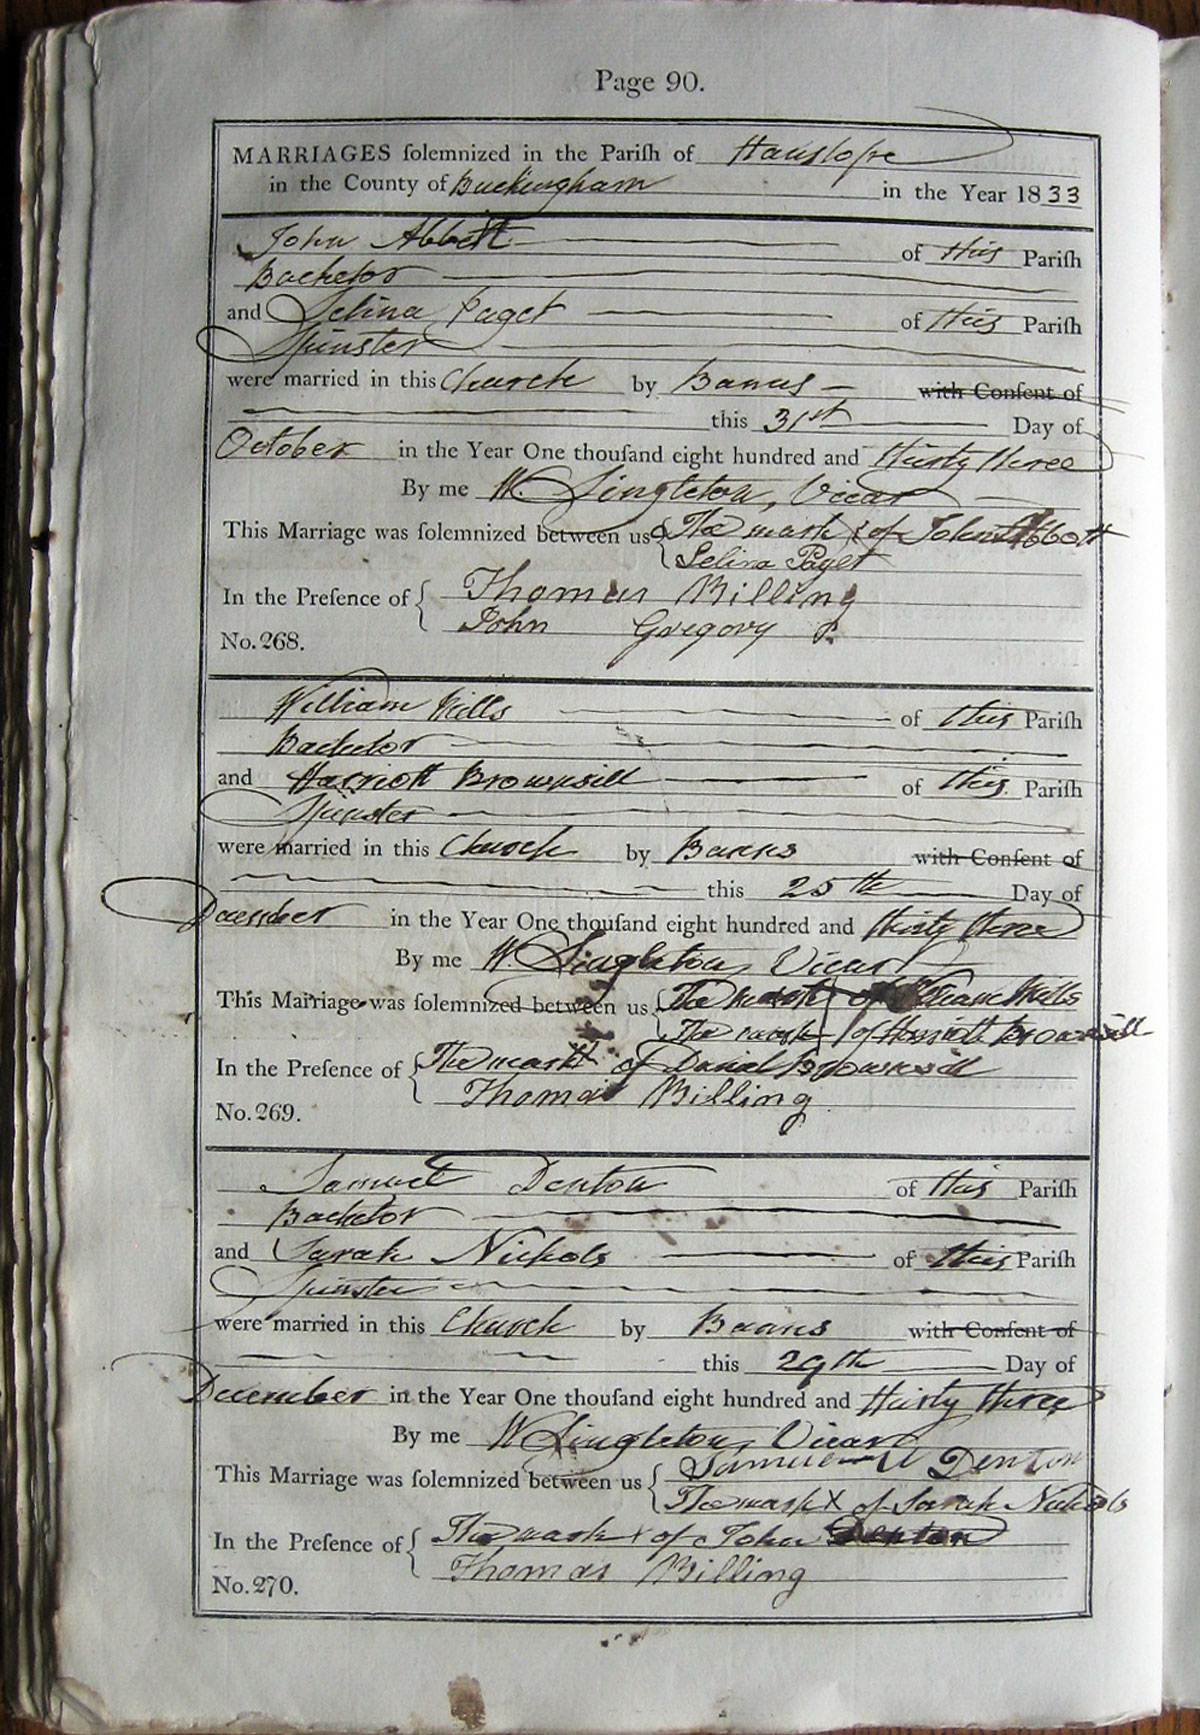 Page 90.
MARRIAGES ſolemnized in the Pariſh of Hanslope
in the County of Buckingham in the Year 1833
John Abbott of this Pariſh
Bachelor
and Selina Paget of this Pariſh
Spinster
were married in this Church by Banns with Conſent of
this 31st Day of
October in the Year One thouſand eight hundred and thirty three
By me W. Singleton, Vicar
This Marriage was ſolemnized between us The mark X of John Abbott
Selina Paget
In the Preſence of Thomas Billing
John Gregory
No. 268.
William Mills of this Pariſh
Bachelor
and Harriott Brownsill of this Pariſh
Spinster
were married in this Church by Banns with Conſent of
this 25th Day of
December in the Year One thouſand eight hundred and thirty three
By me W. Singleton, Vicar
This Marriage was ſolemnized between us The mark of William Mills
The mark of Harriott Brownsill
In the Preſence of The mark of Daniel Brownsill
Thomas Billing
No. 269.
Samuel Denton of this Pariſh
Bachelor
and Sarah Nickols of this Pariſh
Spinster
were married in this Church by Banns with Conſent of
this 29th Day of
December in the Year One thouſand eight hundred and thirty three
By me W Singleton, Vicar
This Marriage was ſolemnized between us Samuel Denton
The mark X of Sarah Nickols
In the Preſence of The mark x of John Denton
Thomas Billing
No. 270.